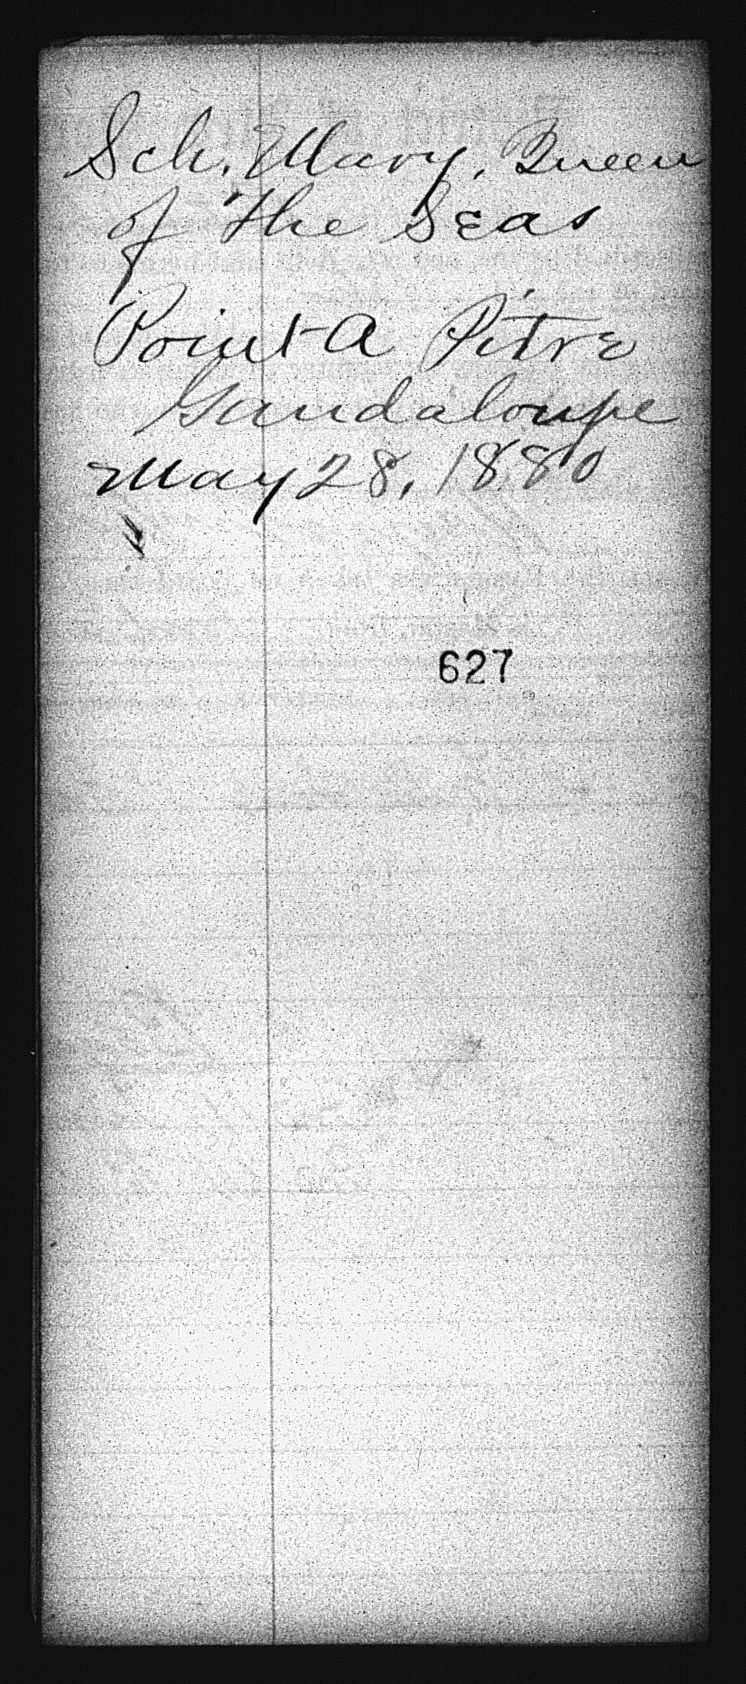 Sch. Mary, Queen
of the Seas
Point A Pitre
Gaudaloupe
May 28, 1880
627